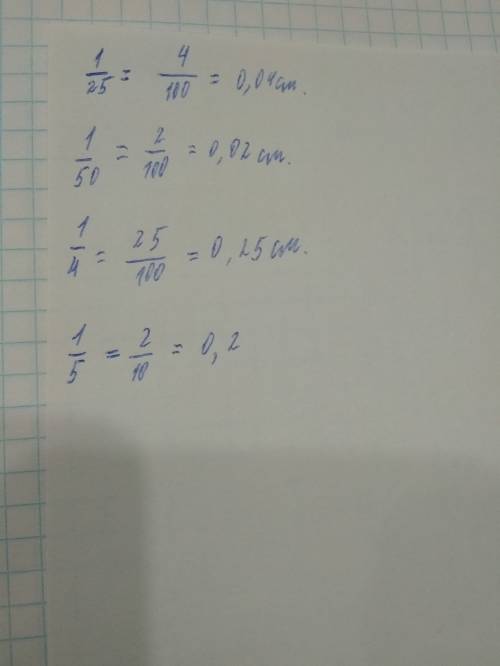 1/25 = 4/100 = 0,04 см.
1/50 = 2/100 = 0,02 см.
1/4 = 25/100 = 0,25 см.
1/5 = 2/10 = 0,2